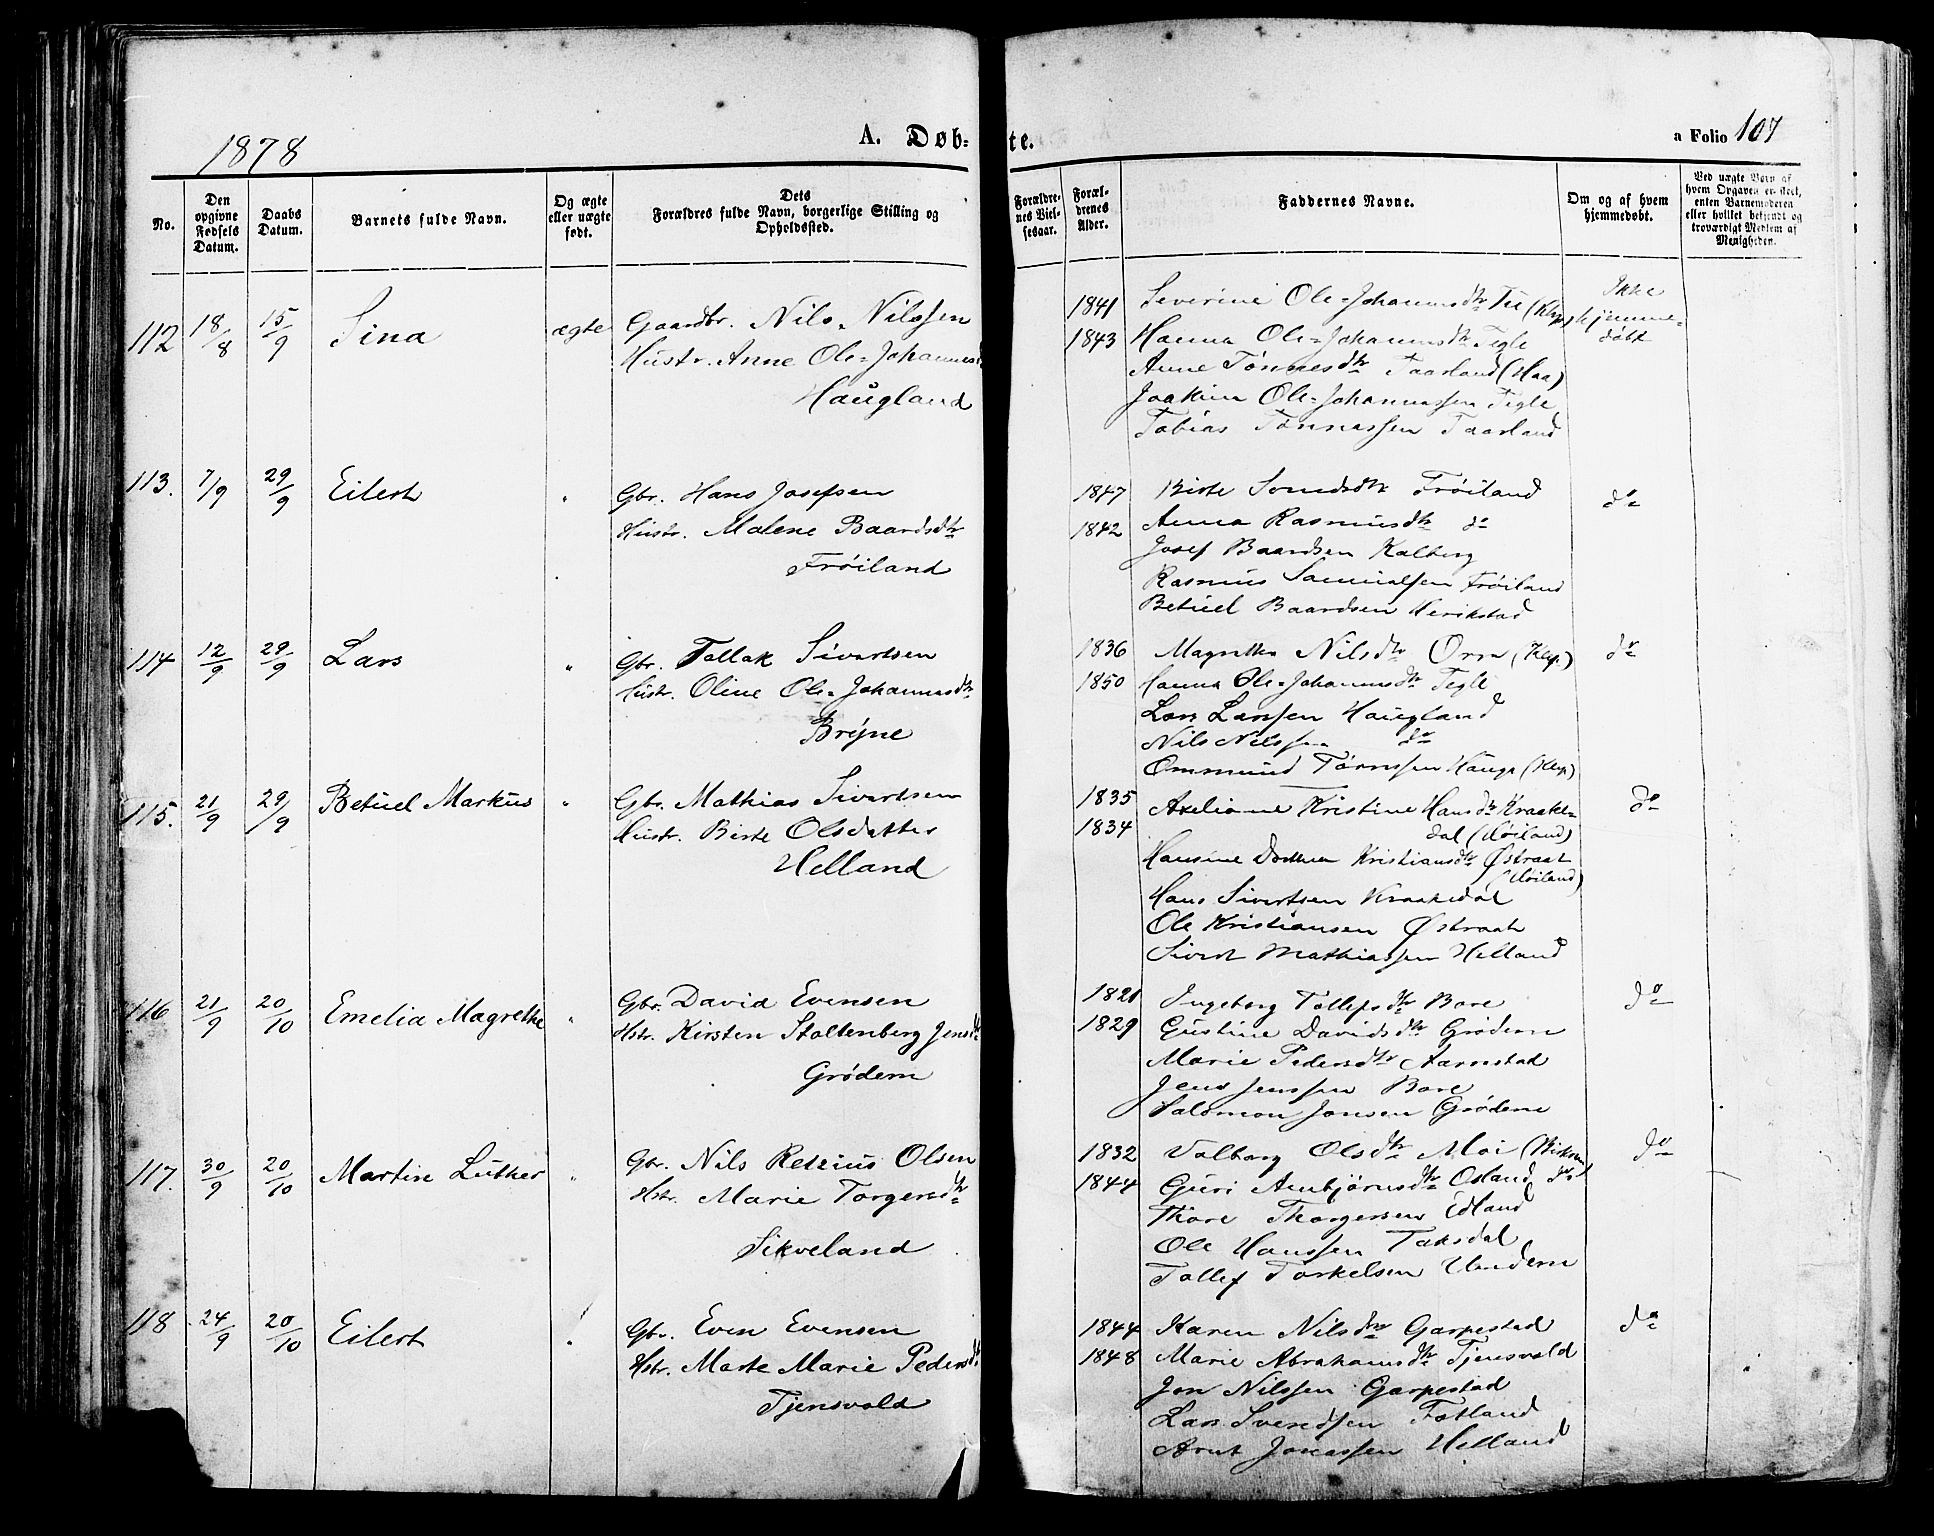 1878
A. Døb-
te.
a Folio 107
No.
Den opgivne Fødsels Datum.
Daabs Datum.
Barnets fulde Navn.
Og ægte eller uægte født.
Dets Forældres fulde Navn, borgerlige Stilling og Opholdssted.
Forældrenes Vielsesaar.
Forældrenes Alder.
Faddernes Navne.
Om og af hvem hjemmedøbt.
Ved uægte Børn af hvem Opgaven er skeet, enten Barnemoderen eller hvilket bekjendt og troværdigt Medlem af Menigheden.
112 18/8 15/9 Sina ægte Gaardbr. Nils Nilssen
Hustr. Anne Ole-Johannesd
Haugland
1841 Severine Ole-Johannesdtr Tu (Klep) Ikke
1843 Hanna Ole-Johannesdtr Tegle hjemme-
Anne Tønnesdtr Taarland (Haa) døbt
Joakim Ole-Johannessen Tegle
Tobias Tønnassen Taarland
113. 7/9 29/9 Eilert " Gbr. Hans Josefsen
Hustr. Malene Baardsdtr
Frøiland
1847 Birte Svendsdtr Frøiland do
1842 Anna Rasmusdtr do
Josef Baardsen Kalberg
Rasmus Samuelsen Frøiland
Betuel Baardsen Herikstad
114 12/9 29/9 Lars " Gbr. Tollak Sivertsen
Hustr. Oline Ole-Johannesdtr
Bryne
1836 Magrethe Nilsdtr Orre (Klep) do
1850 Hanna Ole-Johannesdtr Tegle
Lars Larssen Haugland
Nils Nilssen do
Ommund Tørressen Hauge (Klep)
115. 21/9 29/9 Betuel Markus " Gbr. Mathias Sivertsen
Hustr. Birte Olsdatter
Helland
1835 Axeliane Kristine Hansdtr Kraake- do
1834 dal (Høiland)
Hansine Dorthea Kristiansdtr Østraat
(Høiland)
Hans Sivertsen Kraakedal
Ole Kristiansen Østraat
Sivert Mathiassen Helland
116 21/9 20/10 Emelia Magrethe " Gbr. David Evensen
Hstr. Kirsten Stoltenberg Jensdt
Grødem
1821 Ingeborg Tollefsdtr Bore do
1829 Gustine Davidsdtr Grødem
Marie Pedersdtr Aarrestad
Jens Jenssen Bore
Salomon Jonsen Grødem
117. 30/9 20/10 Martin Luther " Gbr. Nils Retzius Olsen
Hstr. Marie Torgersdtr
Sikveland
1832 Valborg Olsdtr Moi do
1844 Guri Ambjørnsdtr Osland do
Thore Thorgersen Edland
Ole Hanssen Taksdal
Tollef Torkelsen Undem
118 24/9 20/10 Eilert " Gbr. Even Evensen
Hstr. Marte Marie Pedersdt
Tjensvold
1844 Karen Nilsdtr Garpestad do
1848 Marie Abrahamsdtr Tjensvold
Jon Nilssen Garpestad
Lars Svendsen Fotland
Arnt Jonassen Helland